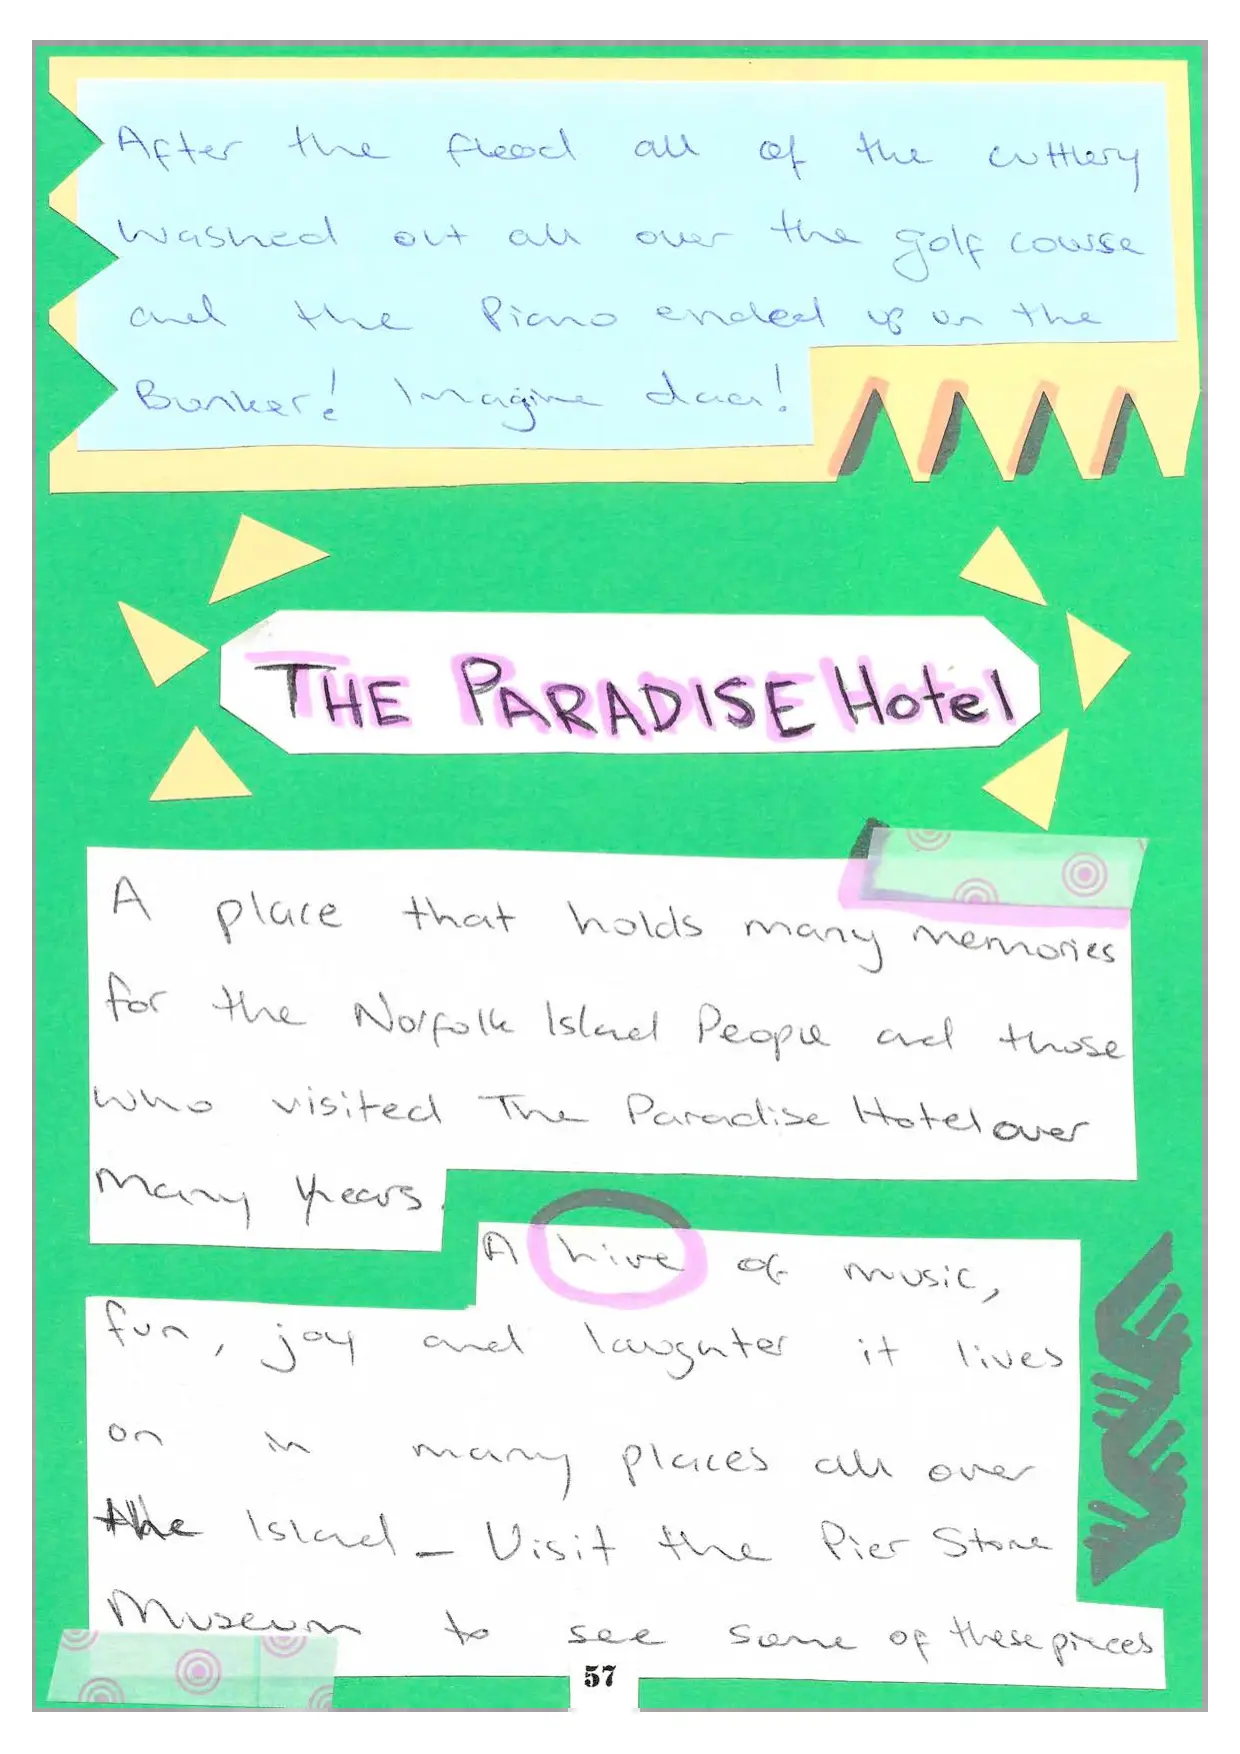 After the flood all of the cuttlery
washed out all over the golf course
and the Piano ended up in the
Bunker! Imagine daa!
THE PARADISE Hotel
A place that holds many memories
for the Norfolk Island People and those
who visited The Paradise Hotel over
many years.
A hive of music,
fun, joy and laughter it lives
on in many places all over
the Island - Visit the Pier Store
Museum to see some of these pieces
57